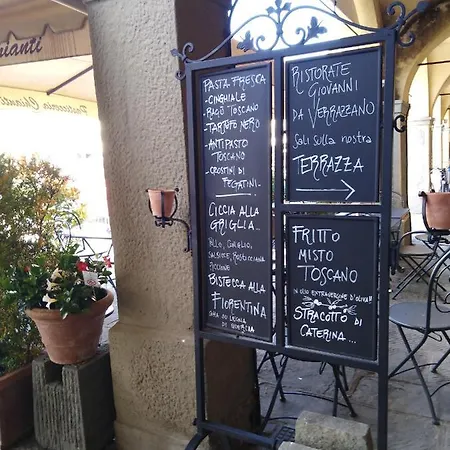 ianti
Pasticceria Chianti
PASTA FRESCA
- CINGHIALE
- RAGÙ TOSCANO
- TARTUFO NERO
- ANTIPASTO
TOSCANO
- CROSTINI DI
FEGATINI
CICCIA ALLA
GRIGLIA...
POLLO, CONIGLIO,
SALSICCE, ROSTICCIANA
PICCIONE
BISTECCA ALLA
FIORENTINA
LEGNA
DI QUERCIA
RISTORATE
GIOVANNI
DA VERRAZZANO
Sali sulla nostra
TERRAZZA
FRITTO
MISTO
TOSCANO
IN OLIO EXTRAVERGINE D'OLIVA!!
STRACOTTO di
CATERINA...